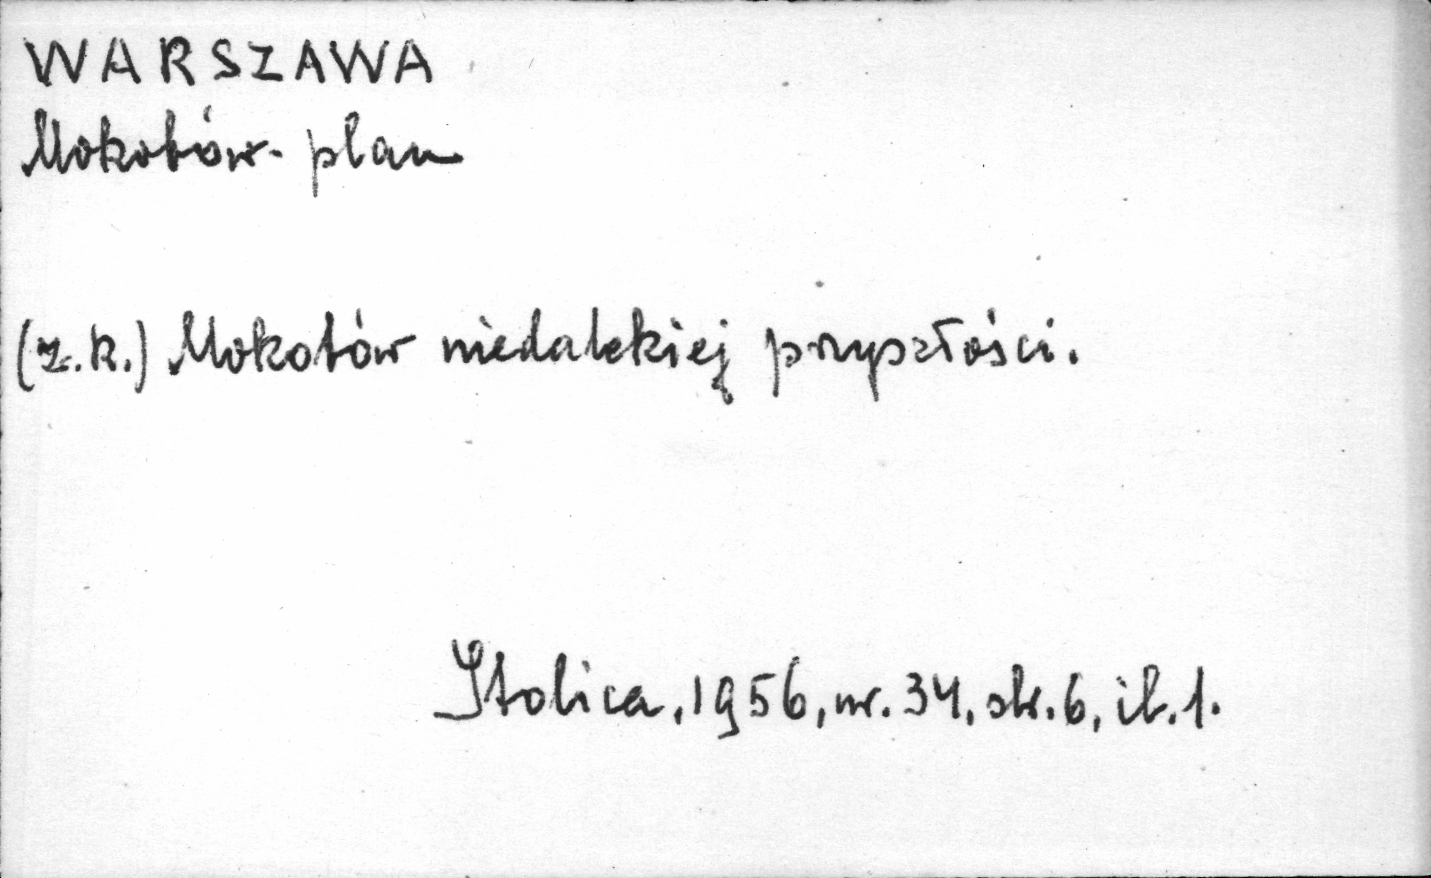 WARSZAWA
Mokotów - plan
(z.k.) Mokotów niedalekiej przyszłości.
Stolica, 1956, nr. 34, str. 6, il. 1.